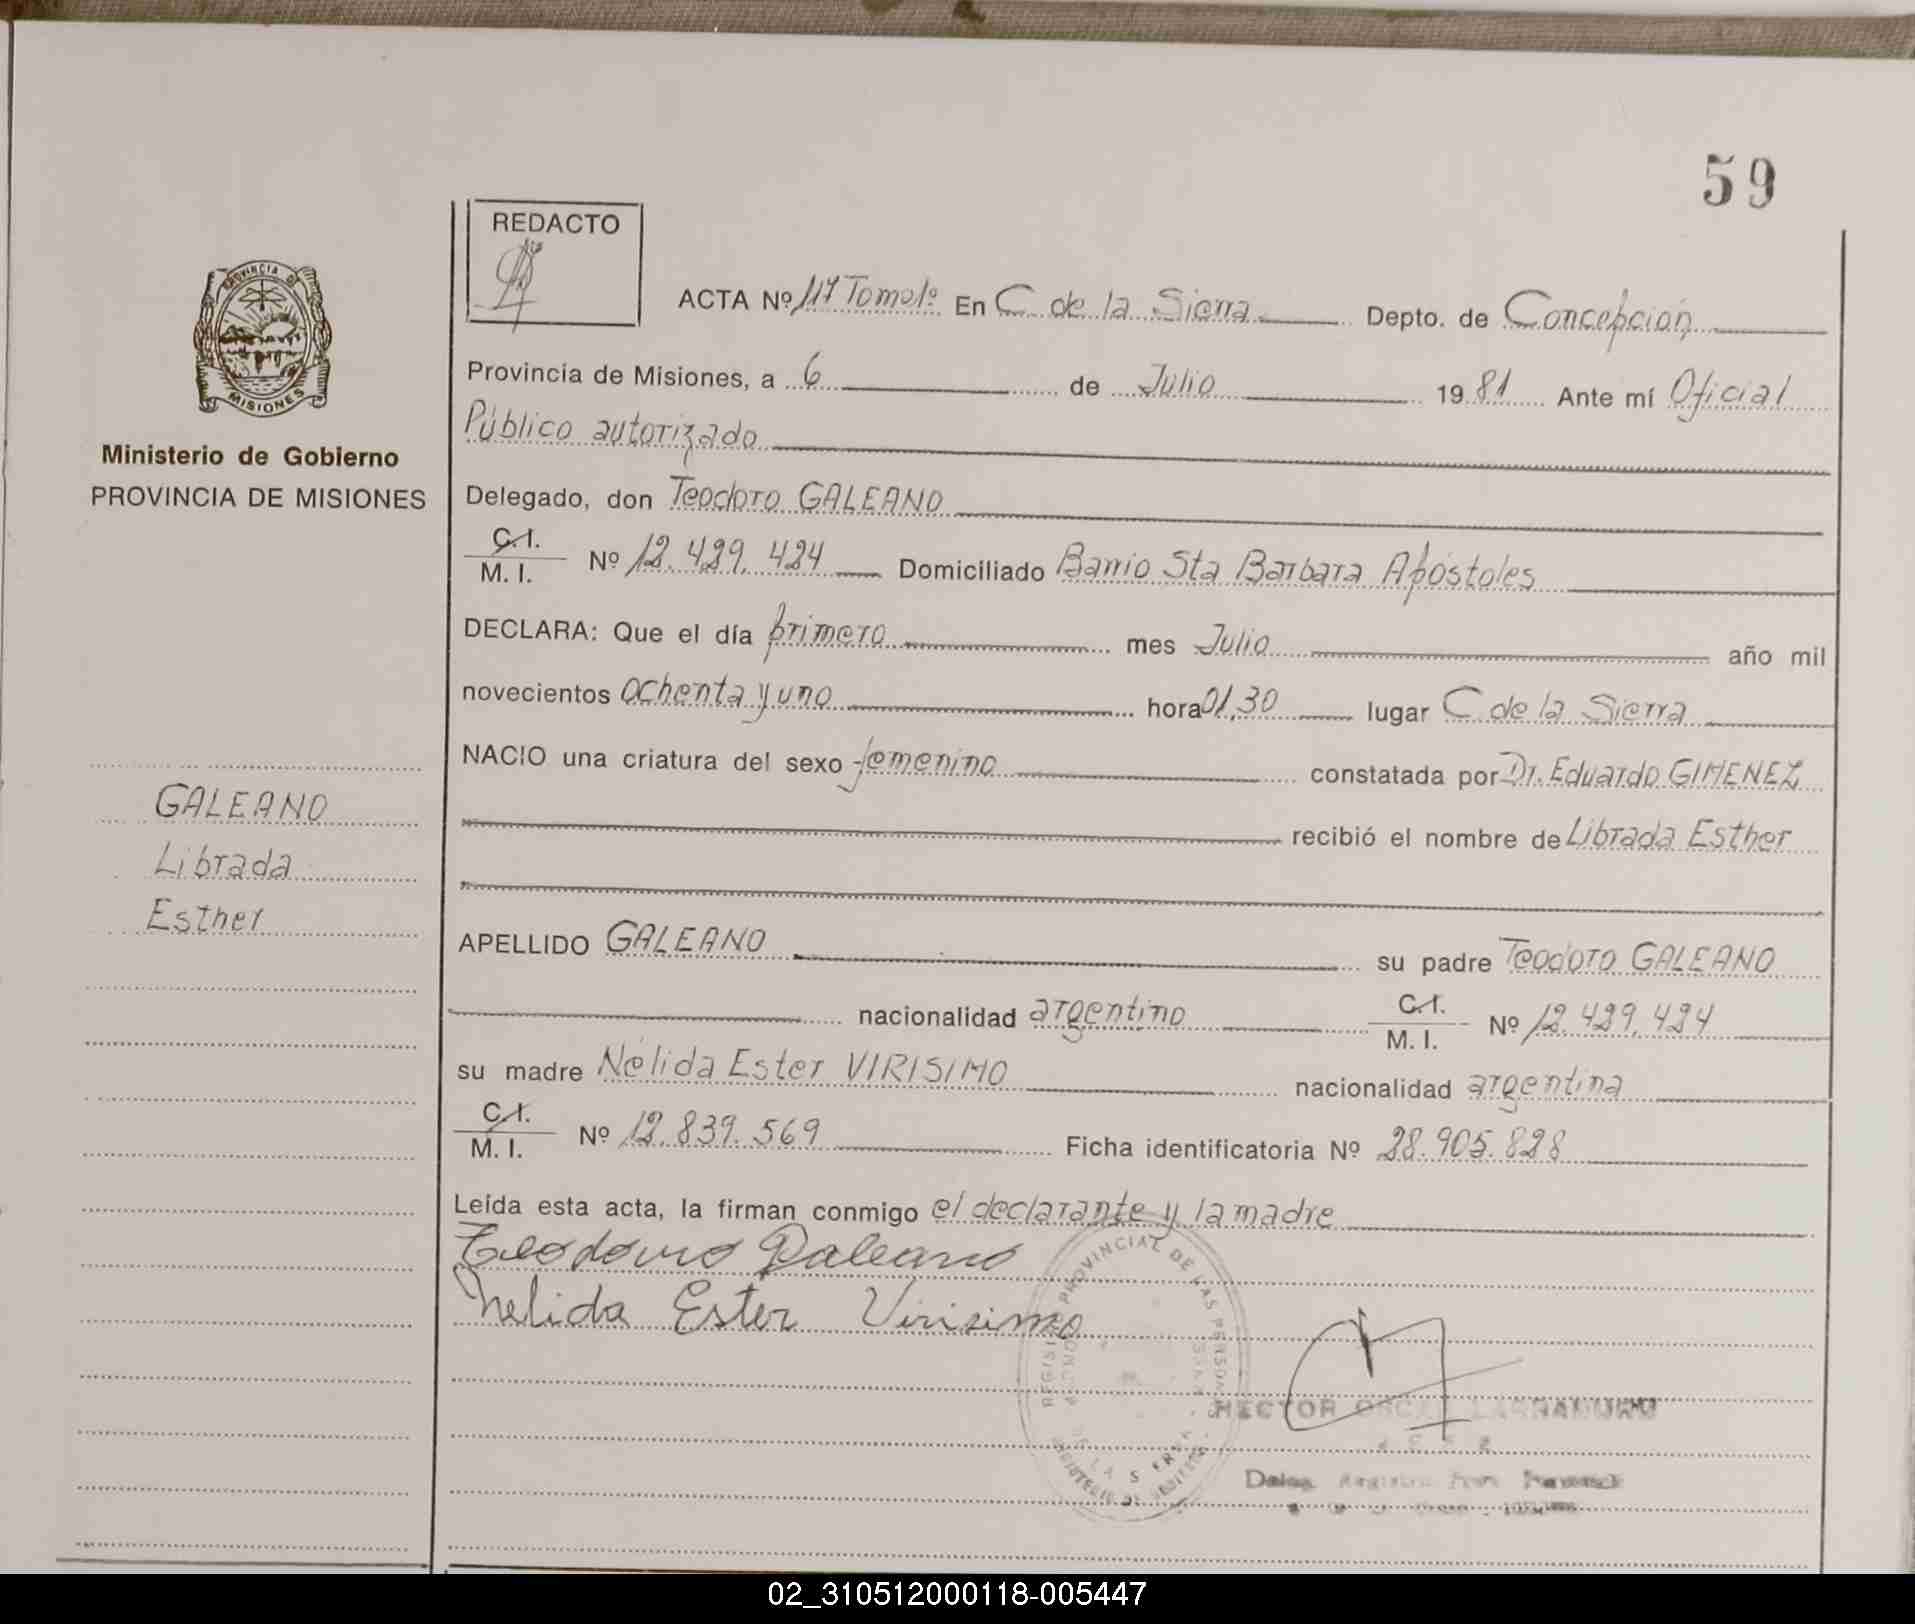 59
REDACTO
PROVINCIA DE
MISIONES
Ministerio de Gobierno
PROVINCIA DE MISIONES
ACTA Nº 117 Tomo 1º En C. de la Sierra Depto. de Concepción
Provincia de Misiones, a 6 de Julio 1981 Ante mí Oficial
Público autorizado
Delegado, don Teodoro GALEANO
C.I.
M.I. Nº 12.429.424 Domiciliado Barrio Sta Barbara Apóstoles
DECLARA: Que el día primero mes Julio año mil
novecientos ochenta y uno hora 01,30 lugar C. de la Sierra
NACIO una criatura del sexo femenino constatada por Dr. Eduardo GIMENEZ
recibió el nombre de Librada Esther
GALEANO
Librada
Esther
APELLIDO GALEANO su padre Teodoro GALEANO
nacionalidad argentino C.I.
M.I. Nº 12.429.424
su madre Nélida Ester VIRISIMO nacionalidad argentina
C.I.
M.I. Nº 12.839.569 Ficha identificatoria Nº 28.905.828
Leída esta acta, la firman conmigo el declarante y la madre
Teodouro Galeano
Nelida Ester Virisimo
REGISTRO PROVINCIAL DE LAS PERSONAS
HECTOR OSCAR
02_310512000118-005447